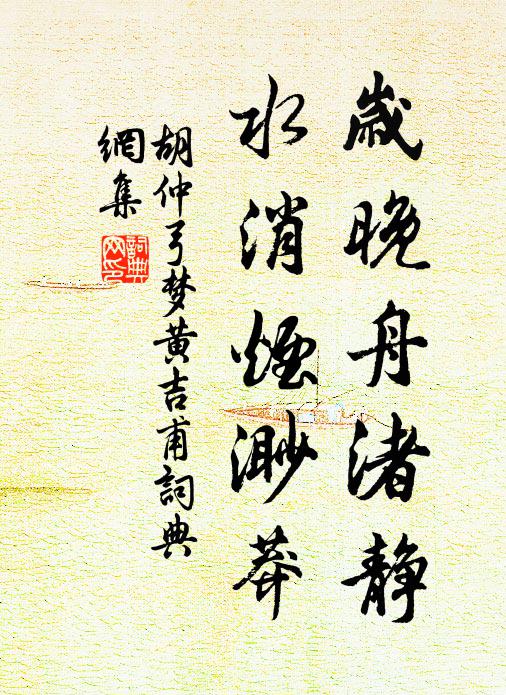 歲晚舟渚靜
水消煙渺莽
胡仲弓梦黄吉甫詞典
網集
詞典
网印